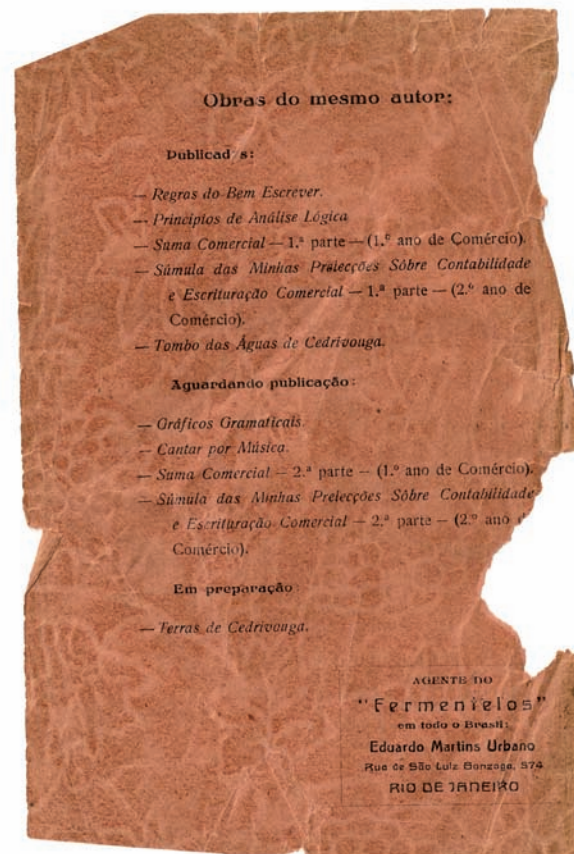 Obras do mesmo autor:
Publicad s:
— Regras do Bem Escrever.
— Princípios de Análise Lógica
— Suma Comercial — 1.ª parte — (1.º ano de Comércio).
— Súmula das Minhas Prelecções Sôbre Contabilidade
e Escrituração Comercial — 1.ª parte — (2.º ano de
Comércio).
— Tombo das Águas de Cedrivouga.
Aguardando publicação:
— Gráficos Gramaticais.
— Cantar por Música.
— Suma Comercial — 2.ª parte — (1.º ano de Comércio).
— Súmula das Minhas Prelecções Sôbre Contabilidade
e Escrituração Comercial — 2.ª parte — (2.º ano d
Comércio).
Em preparação:
— Terras de Cedrivouga.
AGENTE DO
"Fermentelos"
em todo o Brasil:
Eduardo Martins Urbano
Rua de São Luiz Gonzaga, 574
RIO DE JANEIRO